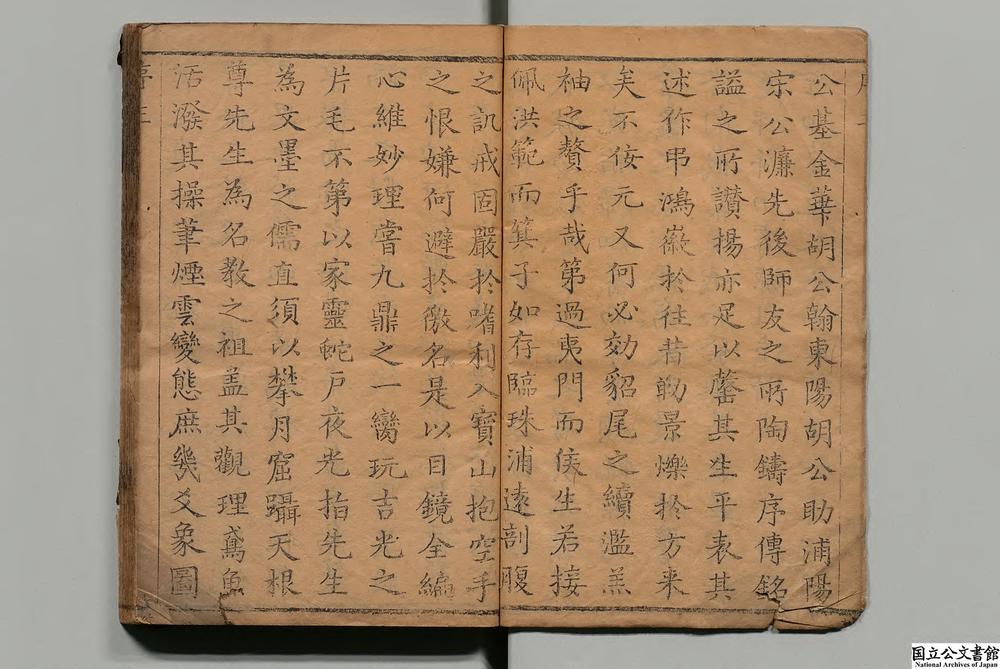 公基金華胡公翰東陽胡公助浦陽
宋公濂先後師友之所陶鑄序傳銘
謚之所讚揚亦足以罄其生平表其
述作弔鴻徽於往昔勒景爍於方来
矣不佞元又何必効貂尾之續濫羔
袖之贅乎哉第過夷門而侯生若接
佩洪範而箕子如存臨珠浦遠剖腹
之訊戒固嚴於嗜利入寶山抱空手
之恨嫌何避於徼名是以目鏡全編
心維妙理嘗九鼎之一臠玩吉光之
片毛不第以家靈蛇戶夜光指先生
為文墨之儒直須以攀月窟躡天根
尊先生為名教之祖盖其觀理鳶魚
活潑其操筆煙雲變態庶幾爻象圖
国立公文書館
National Archives of Japan